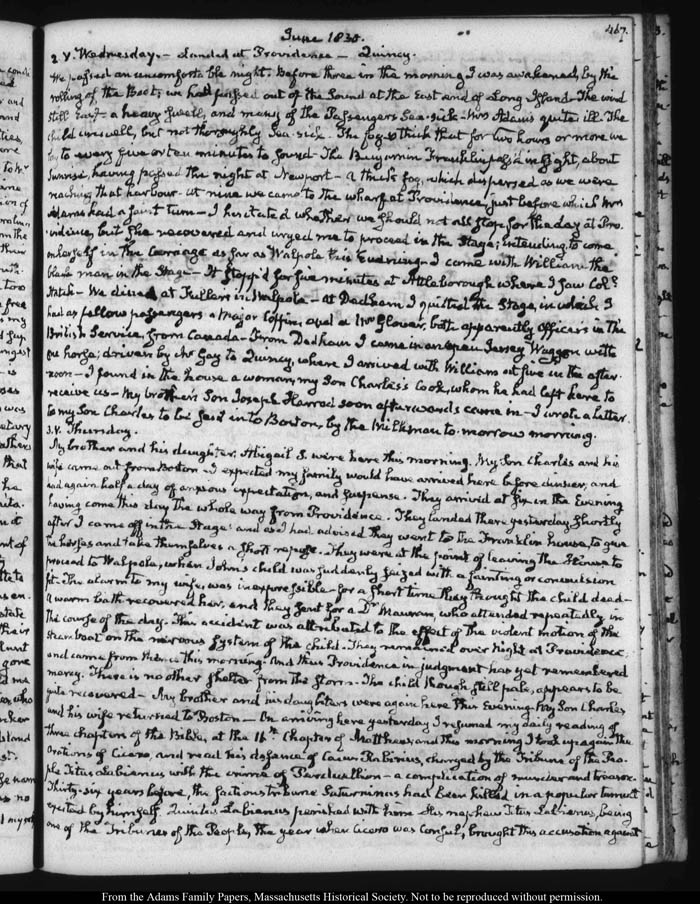 June 1835.
467.
2. V. Wednesday. — Landed at Providence — Quincy.
We passed an uncomfortable night. Before three in the morning I was awakened, by the
rolling of the Boat; we had passed out of the Sound at the East end of Long Island. The wind
still East — a heavy swell, and many of the Passengers Sea-sick — Mrs Adams quite ill. The
child unwell, but not thoroughly Sea-sick. The fog so thick that for two hours or more we
to every five or ten minutes to sound. The Benjamin Franklin pass'd in sight, about
Sunrise, having passed the night at Newport — A thick fog, which dispersed as we were
reaching that harbour. At nine we came to the wharf at Providence, just before which Mrs
Adams had a faint turn — I hesitated whether we should not all stop for the day at Pro-
vidence, but she recovered and urged me to proceed in the Stage; intending to come
herself in the Carriage as far as Walpole this Evening. I came with William the
black man in the Stage — It stopp'd for five minutes at Attleborough where I saw Coll.
Hatch — We dined at Fuller's in Walpole — at Dedham I quitted the Stage, in which I
had as fellow passengers a Major Coffin, and a Mr Glover, both apparently Officers in the
British Service from Canada — From Dedham I came in an open Jersey Waggon with
one horse; driven by Mr Gay to Quincy, where I arrived with William at five in the after-
noon — I found in the house a woman, my Son Charles's Cook, whom he had left here to
receive us — My brother's Son Joseph Harrod soon afterwards came in — I wrote a letter
to my Son Charles to be sent into Boston, by the Milkman to-morrow morning.
3. V. Thursday.
My brother and his daughter, Abigail S. were here this morning. My Son Charles and his
wife came out from Boston — I expected my family would have arrived here before dinner, and
had again half a day of anxious expectation, and suspense. They arrived at six in the Evening
having come this day the whole way from Providence. They landed there yesterday shortly
after I came off in the Stage: and as I had advised they went to the Franklin house, to give
the horses and take themselves a short repose. They were at the point of leaving the House to
proceed to Walpole, when John's child was suddenly seized with a fainting or convulsion
fit. The alarm to my wife, was inexpressible — for a short time they thought the child dead —
A warm bath recovered her, and they sent for a Dr Mauran, who attended repeatedly in
the course of the day. This accident was attributed to the effect of the violent motion of the
Steam boat on the nervous System of the child. They remained over night at Providence
and came from thence this morning. And thus Providence in judgment has yet remembered
mercy. There is no other shelter from the storm. The child though still pale, appears to be
quite recovered — My brother and his daughters were again here this Evening. My Son Charles
and his wife returned to Boston — On arriving here yesterday I resumed my daily reading of
three chapters of the Bible, at the 16th Chapter of Matthew, and this morning I took up again the
Orations of Cicero, and read his defence of Caius Rabirius, charged by the Tribune of the Peo-
ple Titus Labienus with the crime of Perduellion — a complication of murder and treason.
Thirty-six years before, the factious tribune Saturninus had been killed in a popular tumult
excited by himself. Quintus Labienus perished with him. His nephew Titus Labienus, being
one of the Tribunes of the People, the year when Cicero was Consul, brought this accusation against
From the Adams Family Papers, Massachusetts Historical Society. Not to be reproduced without permission.